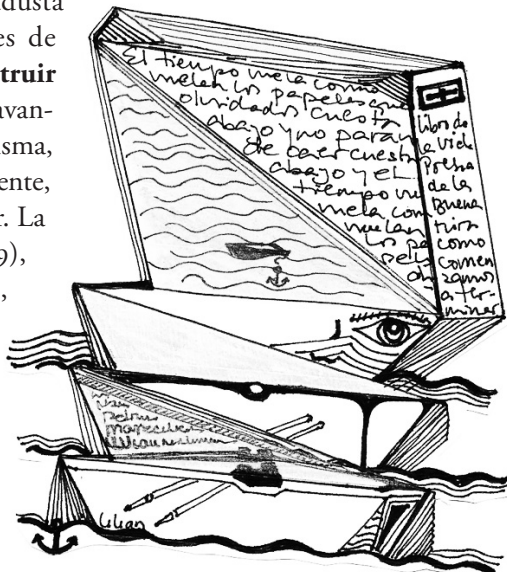 dusta
es de
truir
avan-
isma,
ente,
r. La
9),
,
El tiempo vuela como
vuelan los papeles que
olvidados cuesta
abajo y no paran
de caer cuesta
abajo y el
tiempo vu
vuela com
vuelan
los pa
pele
Libro de
la vida
de la
buena
como
comen
zamos
a ter-
minar
Lilian